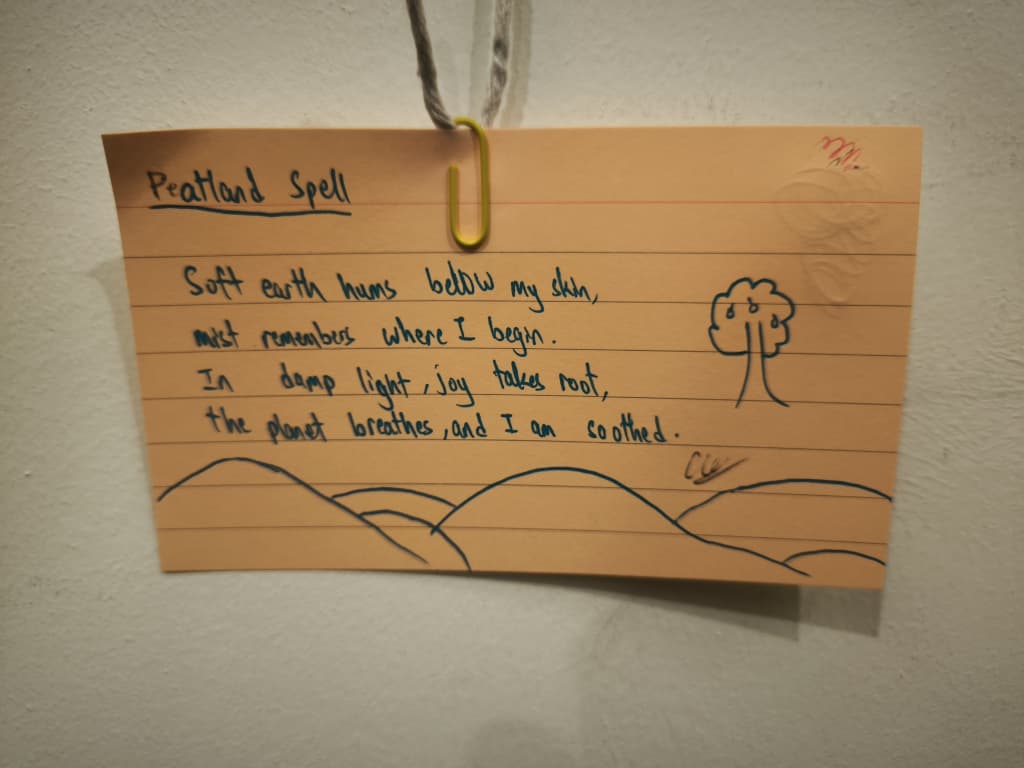 Peatland Spell
Soft earth hums below my skin,
mist remembers where I begin.
In damp light, joy takes root,
the planet breathes, and I am soothed.